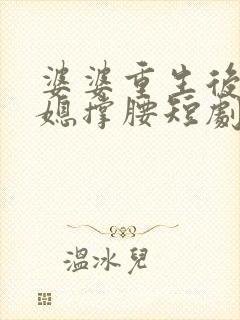 婆婆重生後
媳撐腰短劇
溫冰兒